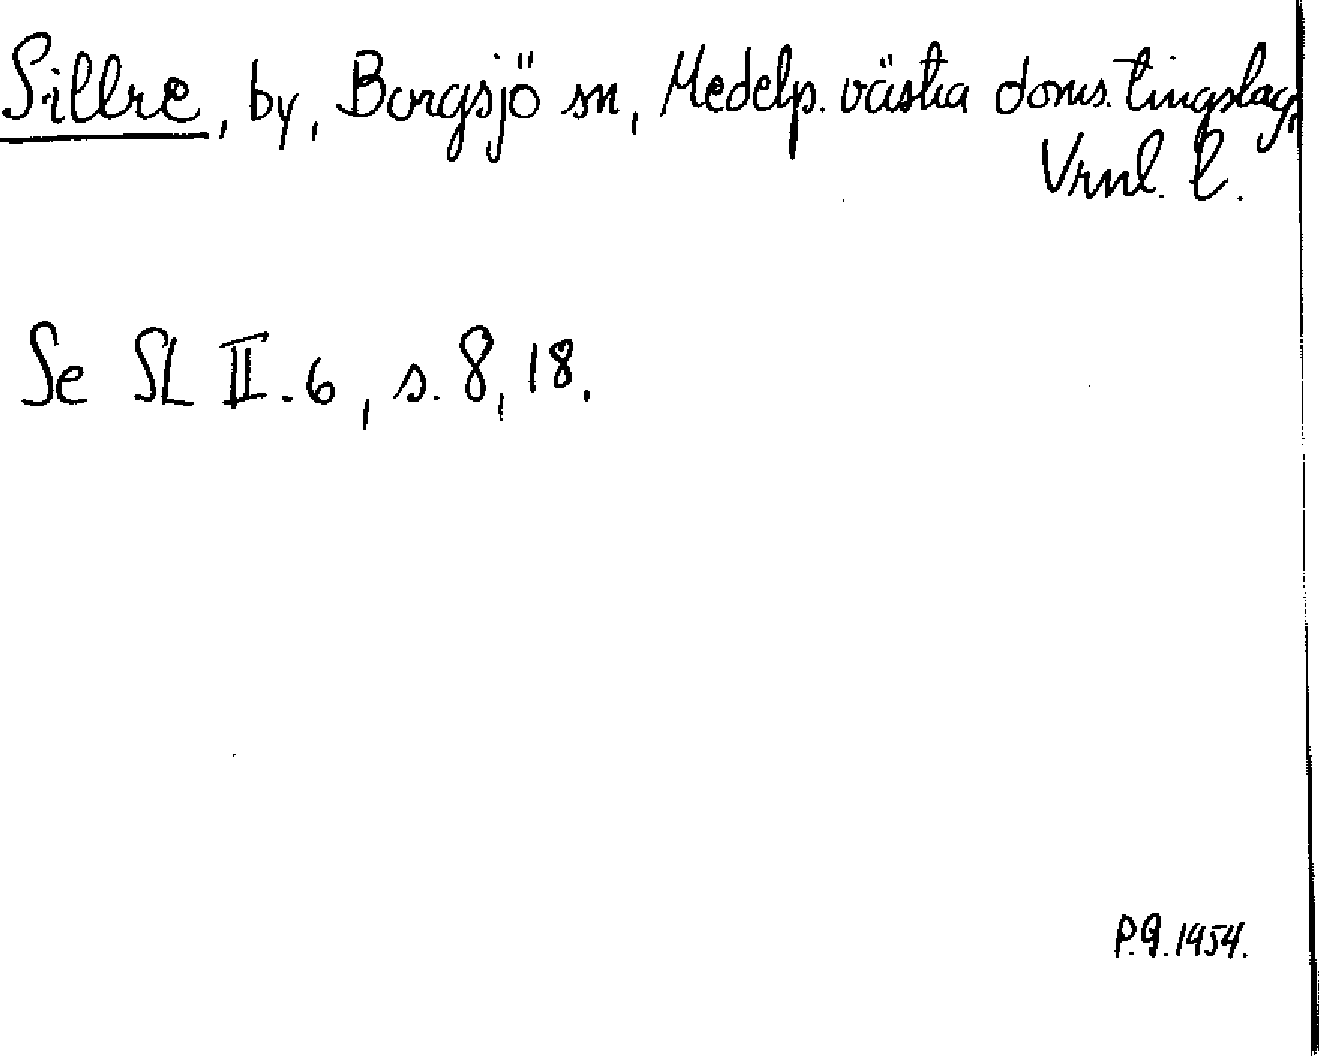 Sillre, by, Borgsjö sn, Medelp. västra doms. tingslag,
Vrnl. l.
Se SL II.6, s. 8, 18.
P.G. 1954.